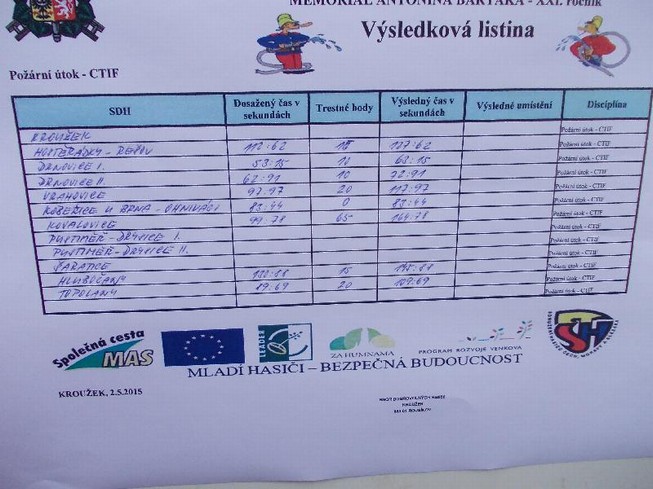 MEMORIÁL ANTONÍNA BARTÁKA - XXI. ročník
Výsledková listina
Požární útok - CTIF
SDH Dosažený čas v sekundách Trestné body Výsledný čas v sekundách Výsledné umístění Disciplína
KROUŽEK Požární útok - CTIF
HOSTĚRÁDKY - REŠOV 112:62 15 127:62 Požární útok - CTIF
DRNOVICE I. 58:15 Požární útok - CTIF
DRNOVICE II. 62:91 10 72:91 Požární útok - CTIF
VRAHOVICE 97:97 20 117:97 Požární útok - CTIF
KOBEŘICE U BRNA - OHNIVÁCI 83:44 0 83:44 Požární útok - CTIF
KOVALOVICE 99:78 65 164:78 Požární útok - CTIF
PUSTIMĚŘ - DRYSICE I. Požární útok - CTIF
PUSTIMĚŘ - DRYSICE II. Požární útok - CTIF
ŠARATICE Požární útok - CTIF
HLUBOČANY 15 Požární útok - CTIF
TOPOLANY 89:69 20 109:69 Požární útok - CTIF
Společná cesta
MAS
LEADER
ZA HUMNAMA
PROGRAM ROZVOJE VENKOVA
MLADÍ HASIČI – BEZPEČNÁ BUDOUCNOST
KROUŽEK, 2.5.2015
KROUŽEK